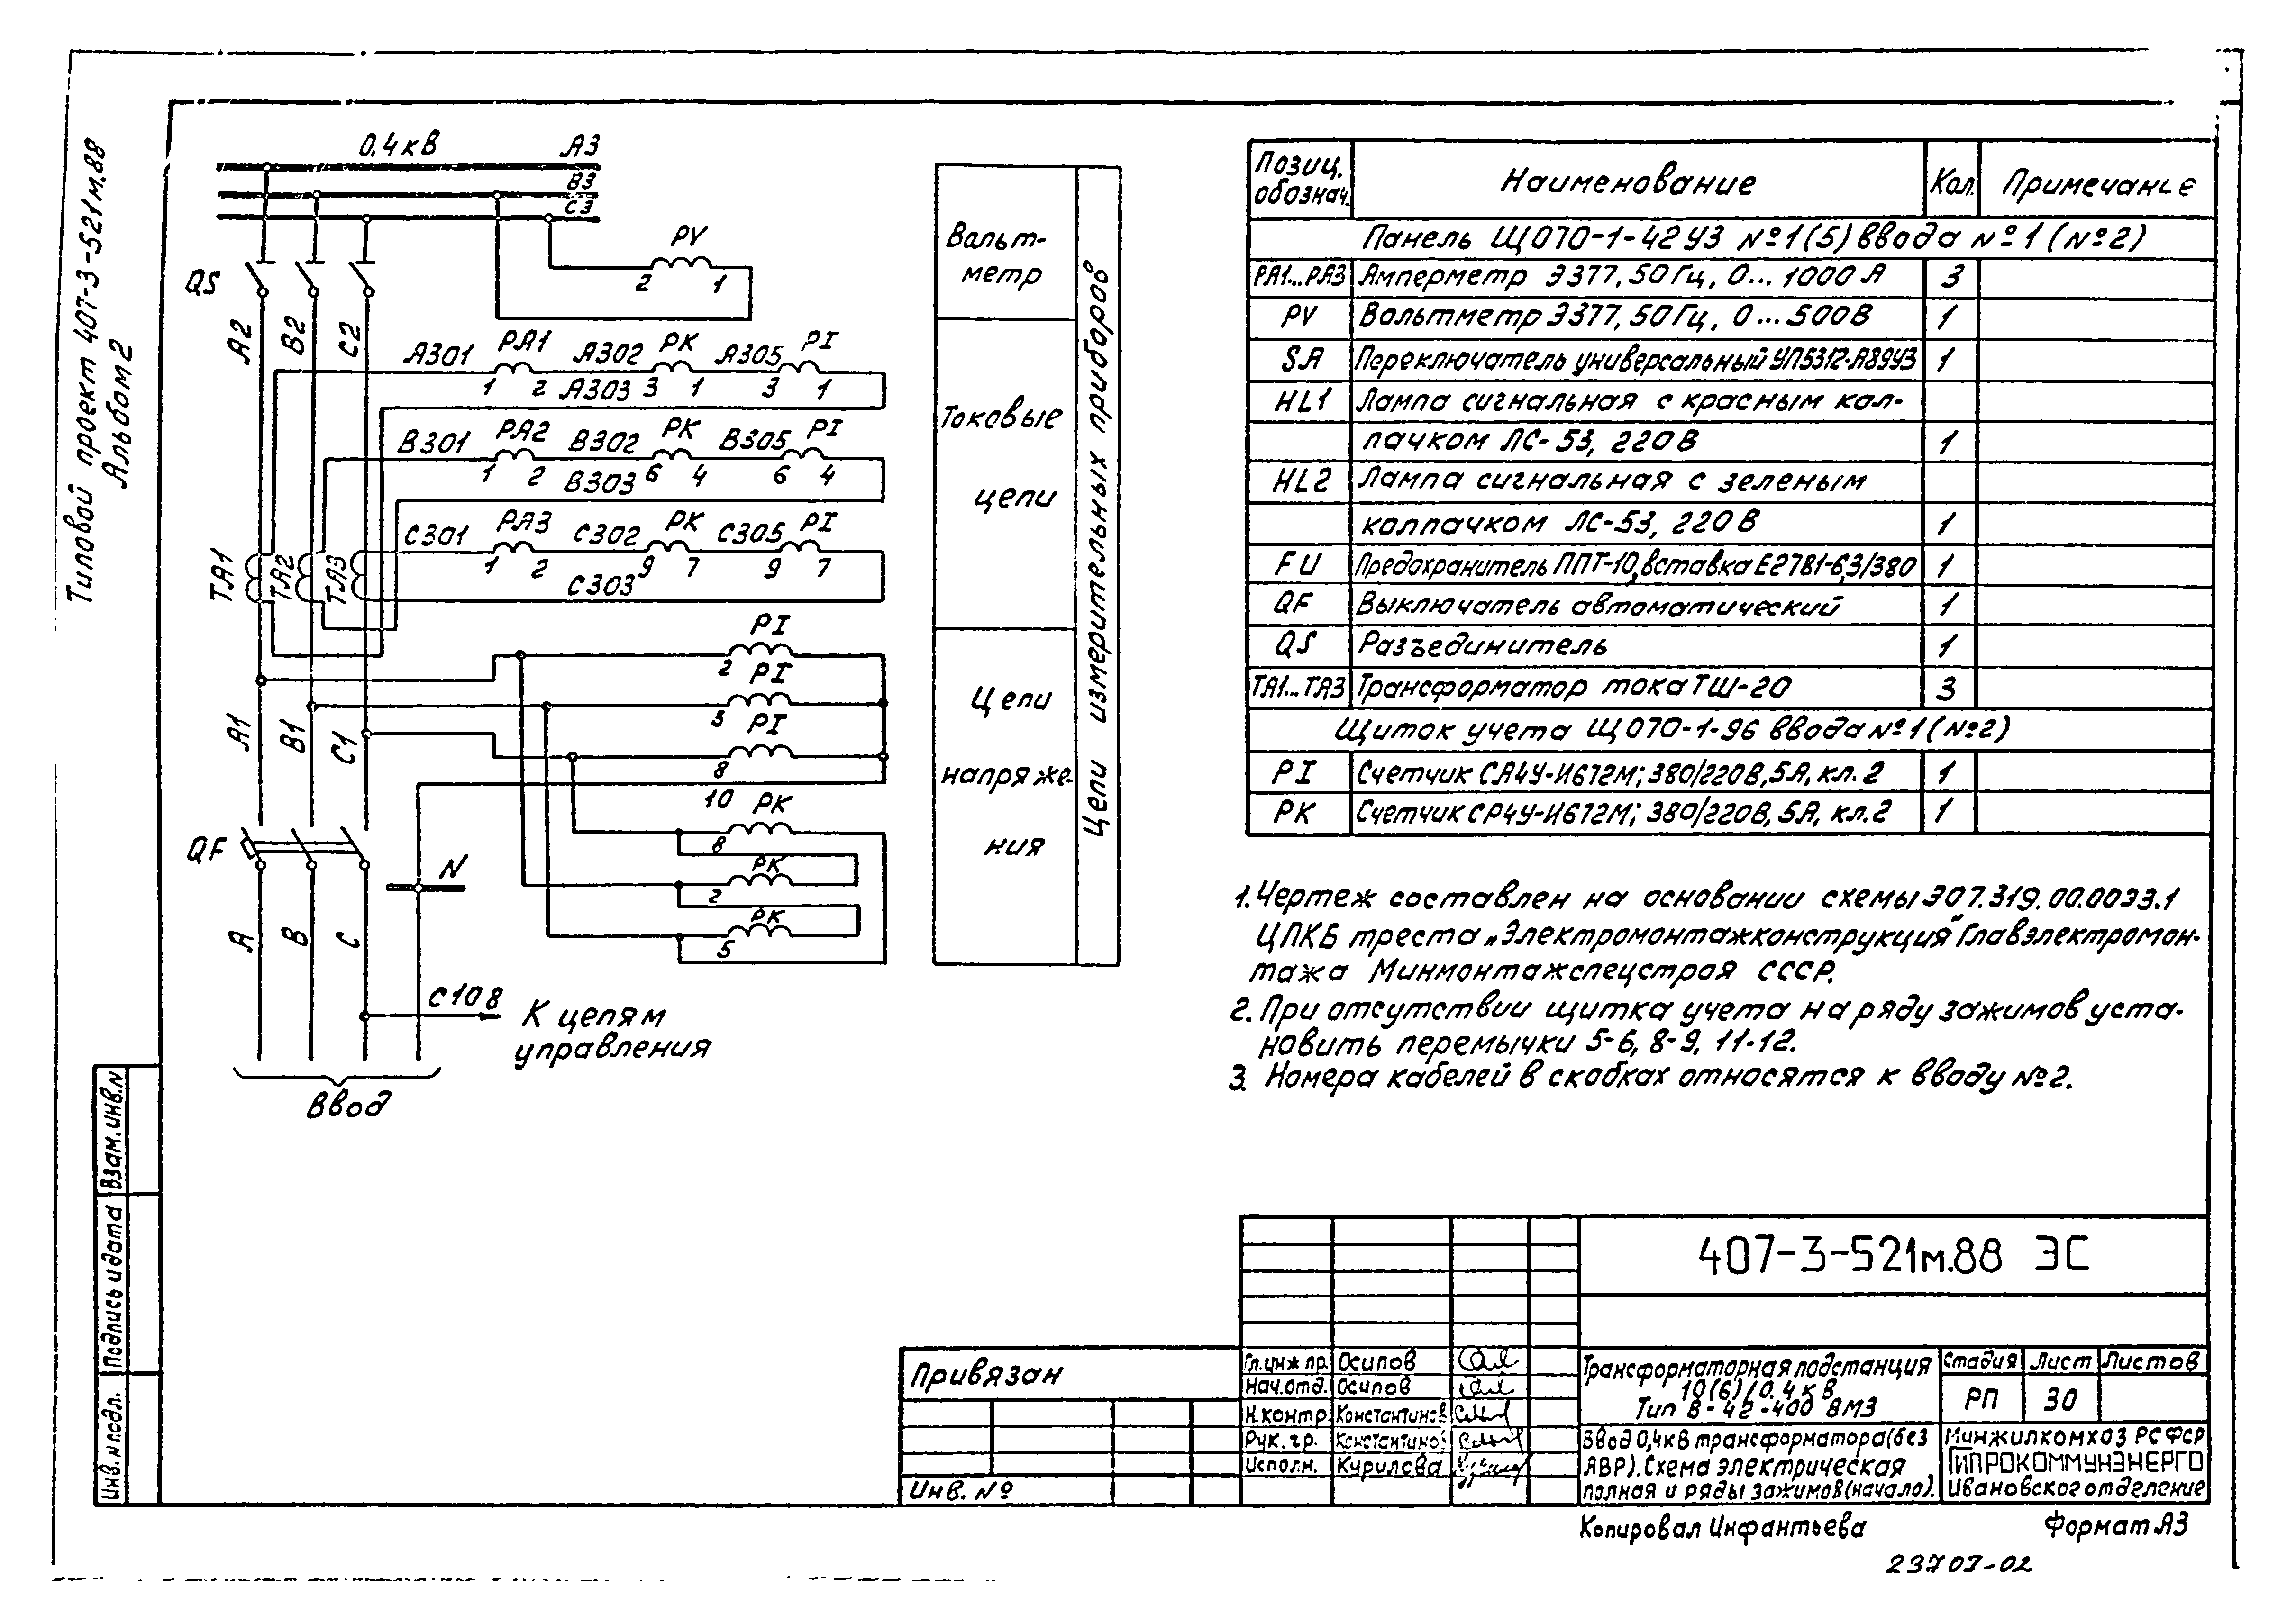 Типовой проект 407-3-521м.88
Альбом 2
0.4кВ
А3
В3
С3
PV
2 1
QS
А2
В2
С2
А301 РА1 А302 РК А305 PI
1 2 А303 3 1 3 1
В301 РА2 В302 РК В305 PI
1 2 В303 6 4 6 4
С301 РА3 С302 РК С305 PI
1 2 9 7 9 7
С303
ТА1
ТА2
ТА3
PI
2
PI
5
PI
8
10
РК
8
РК
2
РК
5
А1
В1
С1
QF
N
А
В
С
С108
К цепям
управления
Ввод
Вольт-
метр
Токовые
цепи
Цепи
напряже-
ния
Цепи измерительных приборов
Позиц. обознач. Наименование Кол. Примечание
Панель ЩО70-1-42У3 №1(5) ввода №1 (№2)
РА1...РА3 Амперметр Э377, 50Гц, 0...1000А 3
PV Вольтметр Э377, 50Гц, 0...500В 1
SA Переключатель универсальный УП5312-А89У3 1
HL1 Лампа сигнальная с красным кол-
пачком ЛС-53, 220В 1
HL2 Лампа сигнальная с зеленым
колпачком ЛС-53, 220В 1
FU Предохранитель ППТ-10, вставка Е27В1-6,3/380 1
QF Выключатель автоматический 1
QS Разъединитель 1
ТА1...ТА3 Трансформатор тока ТШ-20 3
Щиток учета ЩО70-1-96 ввода №1 (№2)
PI Счетчик СА4У-И672М; 380/220В, 5А, кл.2 1
РК Счетчик СР4У-И672М; 380/220В, 5А, кл.2 1
1. Чертеж составлен на основании схемы Э07.319.00.0033.1
ЦПКБ треста „Электромонтажконструкция" Главэлектромон-
тажа Минмонтажспецстроя СССР.
2. При отсутствии щитка учета на ряду зажимов уста-
новить перемычки 5-6, 8-9, 11-12.
3. Номера кабелей в скобках относятся к вводу №2.
Взам. инв. N
Подпись и дата
Инв. N подл.
Привязан
Инв. №
407-3-521м.88 ЭС
Гл.инж пр. Осипов
Нач.отд. Осипов
Н.контр. Константинов
Рук. гр. Константинов
Исполн. Курилова
Трансформаторная подстанция
10(6)/0.4кВ
Тип В-42-400 ВМ3
Стадия Лист Листов
РП 30
Ввод 0,4кВ трансформатора (без
АВР). Схема электрическая
полная и ряды зажимов (начало).
Минжилкомхоз РСФСР
ГИПРОКОММУНЭНЕРГО
Ивановское отделение
Копировал Инфантьева
Формат А3
23707-02